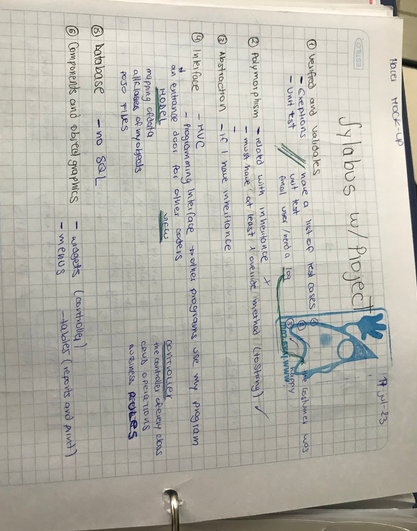 Mock-up
17 Jul-23
Syllabus w/ Project
① Verified and validates
- Exceptions
- Unit test
have a list of test cases
unit test
final user / need a log
the costumer was
happy
② Polymorphism - related with inheritance
- must have at least 1 override method (tostring) ✓
③ Abstraction - if I have inheritance
④ Interface - MVC
- Programming Interface → other programs use my program
an entrance door for other coders
MODEL
mapping of data
all classes of my objects
POJO FILES
VIEW
CONTROLLER
the controller of every class
CRUD operations
business RULES
⑤ Database - no SQL
⑥ Components and object graphics - widgets (controller)
- menus
- tables (reports and print)